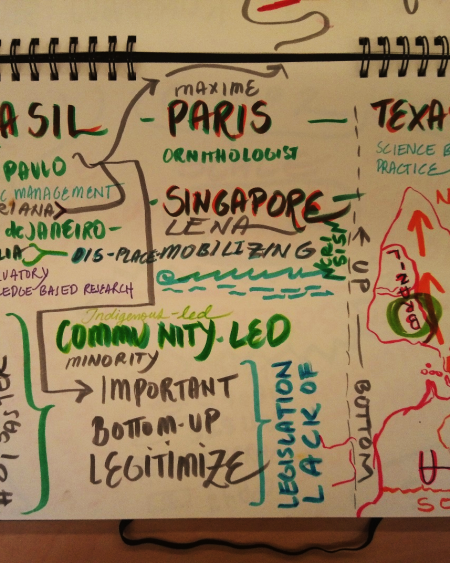 MAXIME
ASIL - PARIS - TEXA
ORNITHOLOGIST
SCIENCE B
PRACTICE
PAULO
C MANAGEMENT
RIANA
SINGAPORE
LENA
de JANEIRO-
LIA
DIS-PLACE-MOBILIZING
VATORY
LEDGE BASED RESEARCH
Indigenous-led
COMMUNITY-LED
MINORITY
IMPORTANT
BOTTOM-UP
LEGITIMIZE
LEGISLATION
LACK OF
UP
BOTTOM